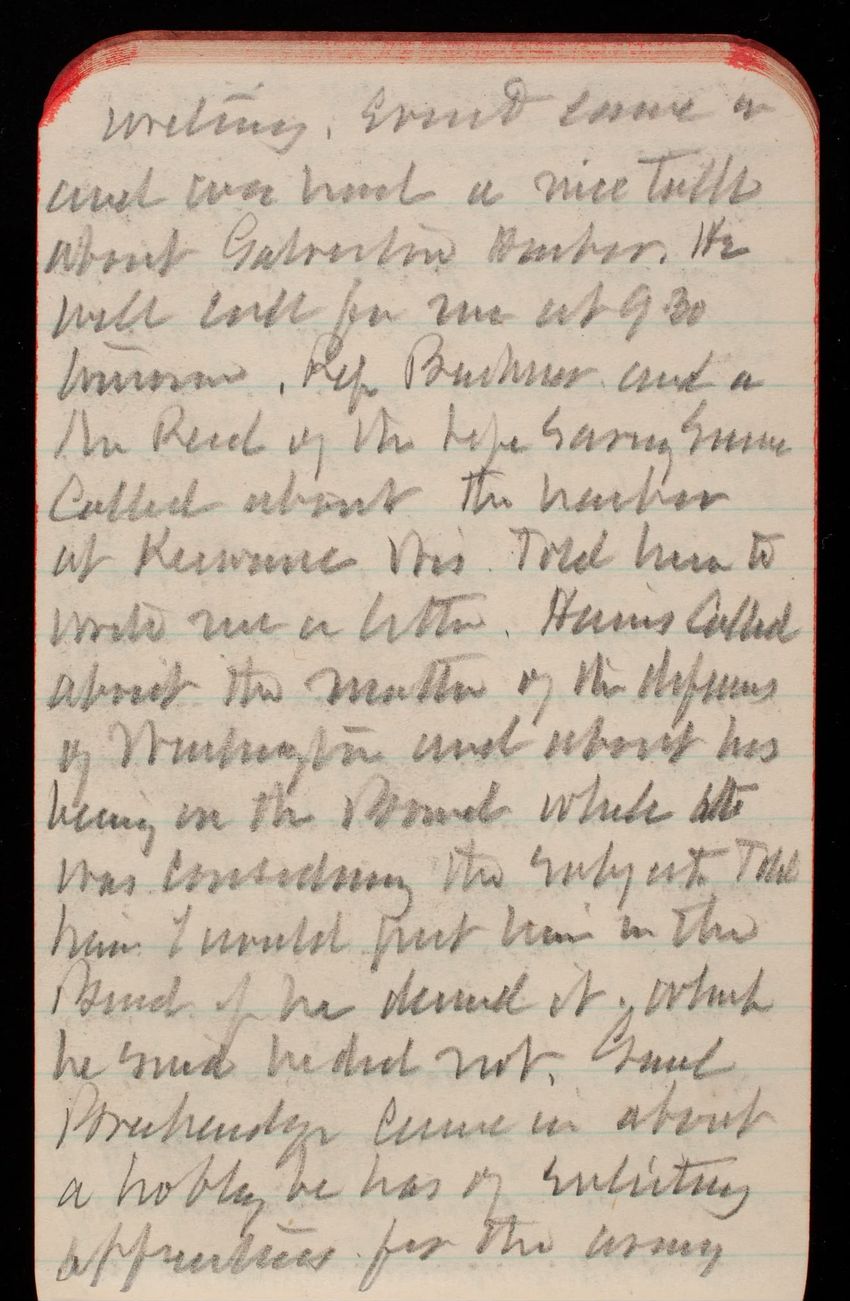 writing. came in
and we had a nice talk
about Galveston Harbor. He
will call for me at 9.30
tomorrow. Rep and a
Mr Reed of the
Called about the harbor
at Kewaunee Wis. Told him to
write me a letter. Hains Called
about the matter of the defenses
of Washington and about his
being on the Board while
was considering the subject. Told
him I would put him in the
Board if he desired it. which
he said he did not. Genl
Breckendge came in about
a hobby he has of enlisting
apprentices for the army